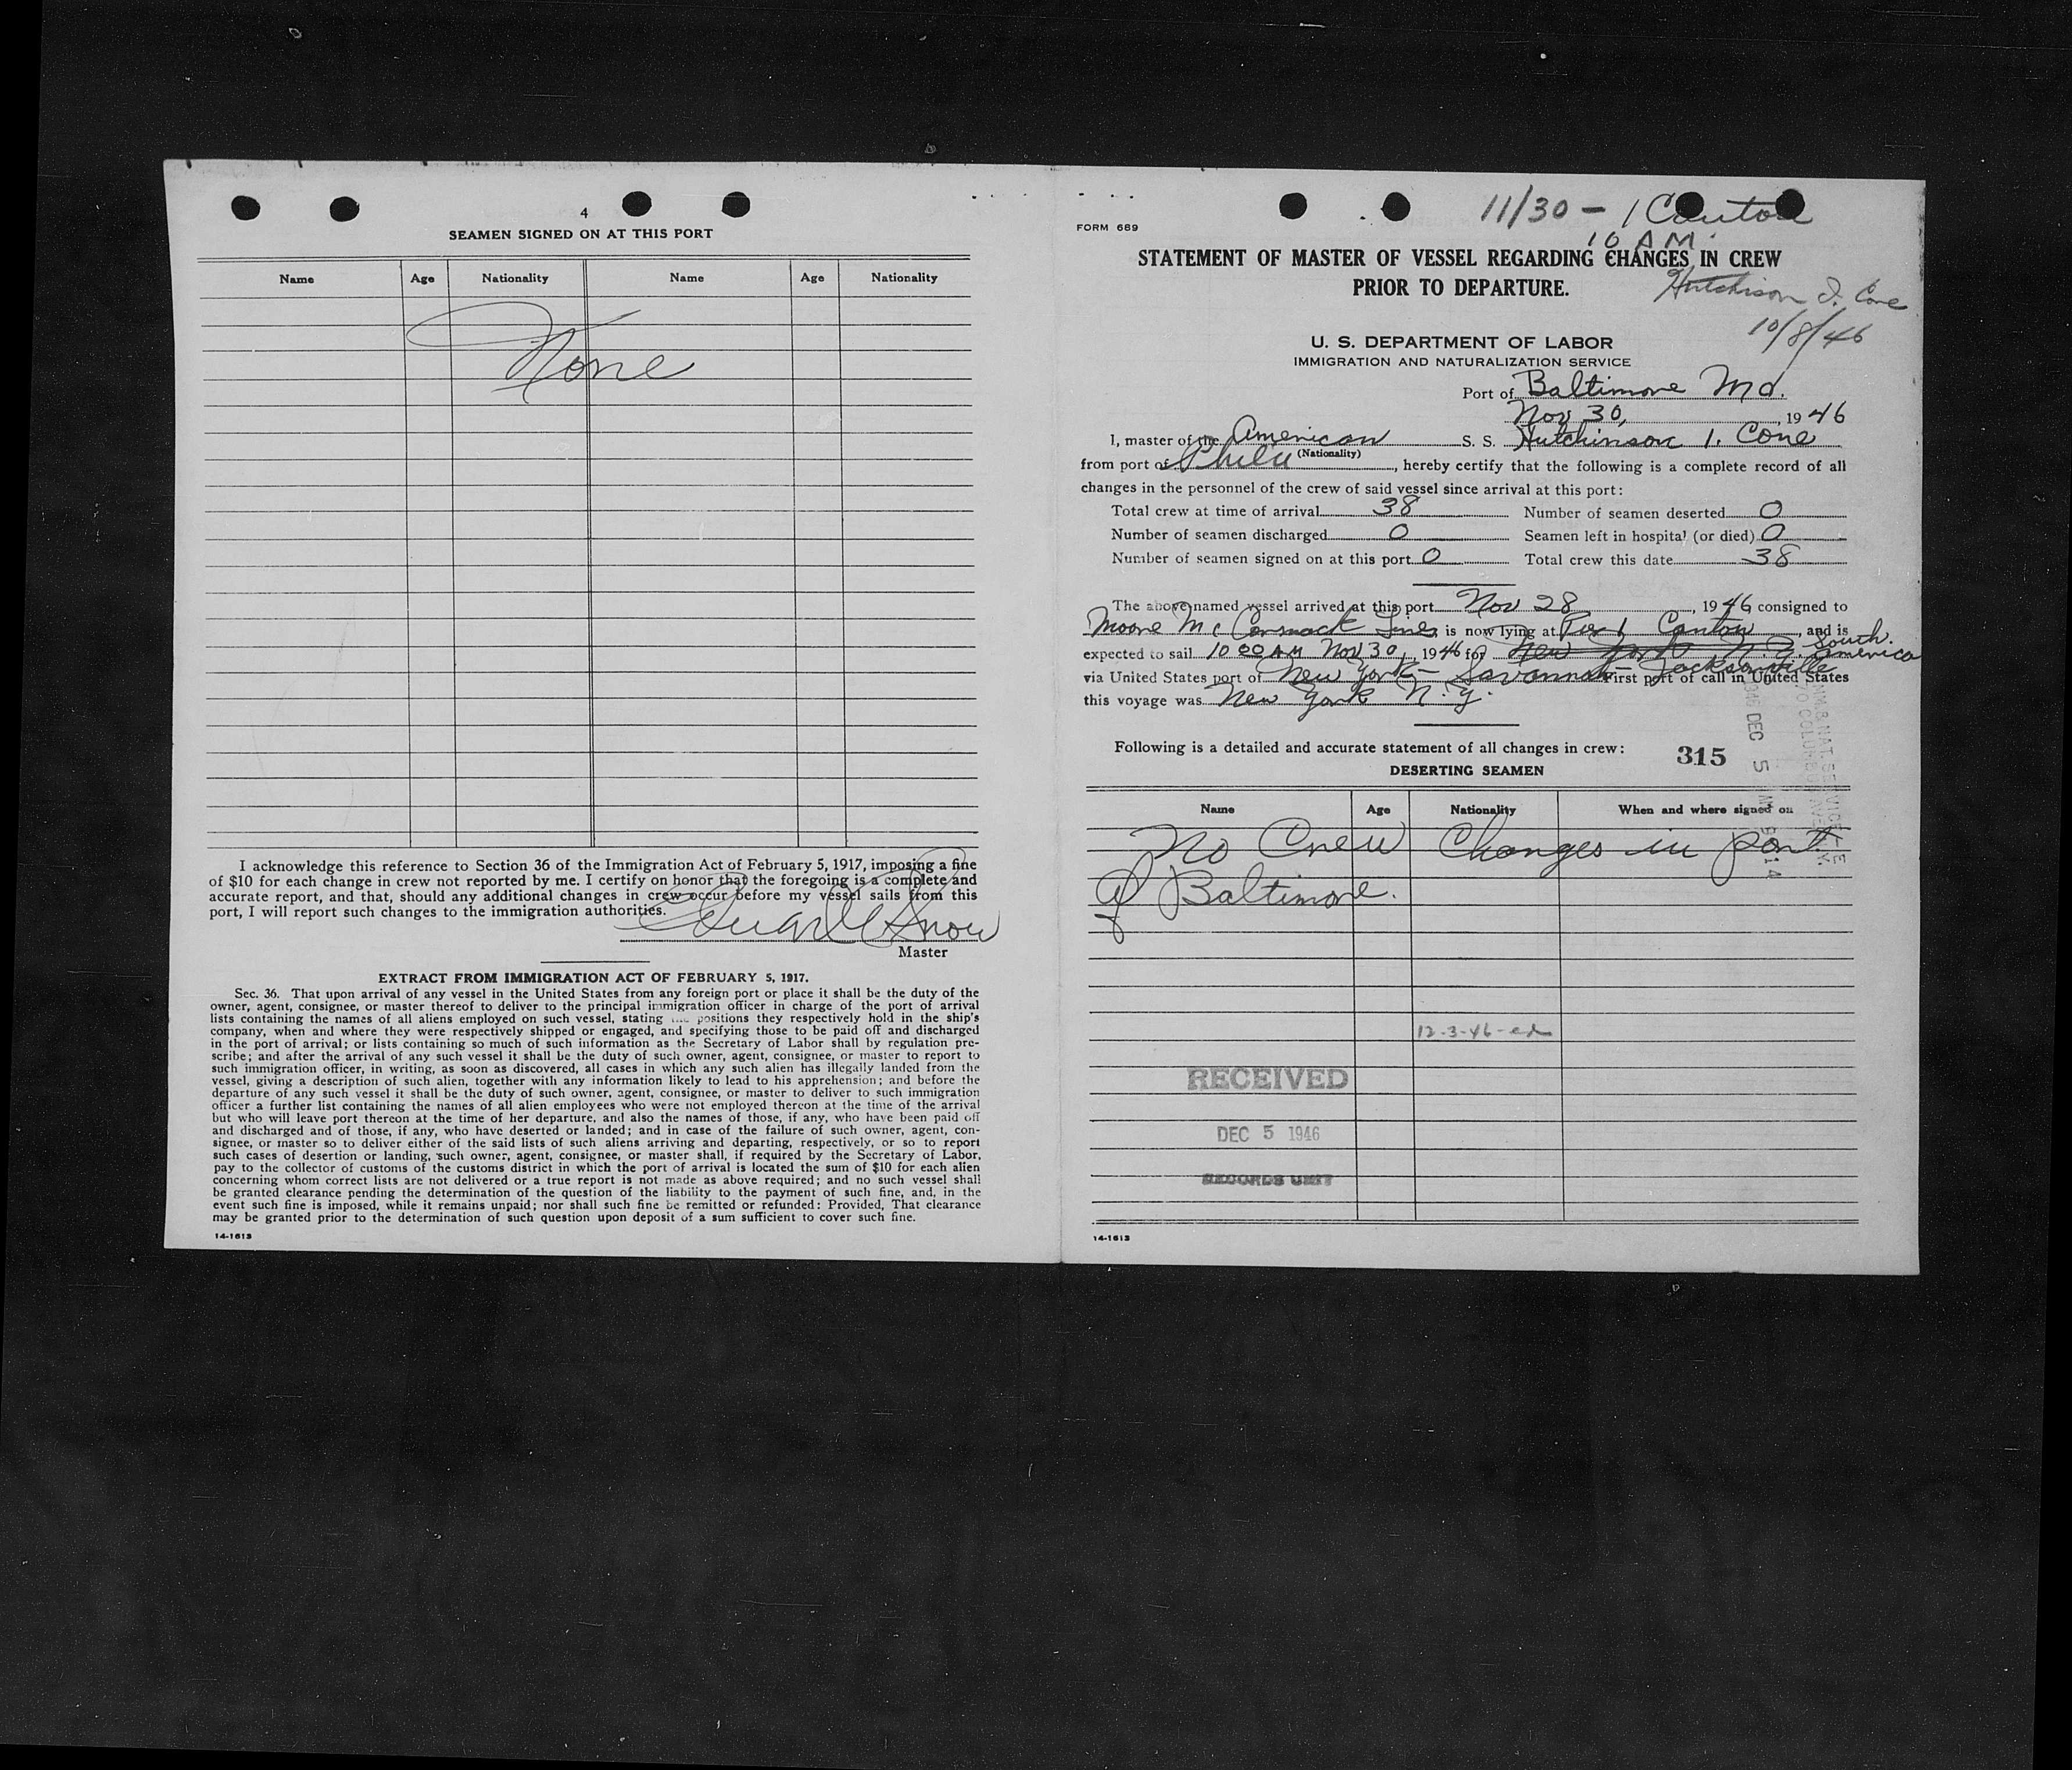 4
SEAMEN SIGNED ON AT THIS PORT
Name Age Nationality Name Age Nationality
None
I acknowledge this reference to Section 36 of the Immigration Act of February 5, 1917, imposing a fine
of $10 for each change in crew not reported by me. I certify on honor that the foregoing is a complete and
accurate report, and that, should any additional changes in crew occur before my vessel sails from this
port, I will report such changes to the immigration authorities.
Snow
Master
EXTRACT FROM IMMIGRATION ACT OF FEBRUARY 5, 1917.
Sec. 36. That upon arrival of any vessel in the United States from any foreign port or place it shall be the duty of the
owner, agent, consignee, or master thereof to deliver to the principal immigration officer in charge of the port of arrival
lists containing the names of all aliens employed on such vessel, stating the positions they respectively hold in the ship's
company, when and where they were respectively shipped or engaged, and specifying those to be paid off and discharged
in the port of arrival; or lists containing so much of such information as the Secretary of Labor shall by regulation pre-
scribe; and after the arrival of any such vessel it shall be the duty of such owner, agent, consignee, or master to report to
such immigration officer, in writing, as soon as discovered, all cases in which any such alien has illegally landed from the
vessel, giving a description of such alien, together with any information likely to lead to his apprehension; and before the
departure of any such vessel it shall be the duty of such owner, agent, consignee, or master to deliver to such immigration
officer a further list containing the names of all alien employees who were not employed thereon at the time of the arrival
but who will leave port thereon at the time of her departure, and also the names of those, if any, who have been paid off
and discharged and of those, if any, who have deserted or landed; and in case of the failure of such owner, agent, con-
signee, or master so to deliver either of the said lists of such aliens arriving and departing, respectively, or so to report
such cases of desertion or landing, such owner, agent, consignee, or master shall, if required by the Secretary of Labor,
pay to the collector of customs of the customs district in which the port of arrival is located the sum of $10 for each alien
concerning whom correct lists are not delivered or a true report is not made as above required; and no such vessel shall
be granted clearance pending the determination of the question of the liability to the payment of such fine, and, in the
event such fine is imposed, while it remains unpaid; nor shall such fine be remitted or refunded: Provided, That clearance
may be granted prior to the determination of such question upon deposit of a sum sufficient to cover such fine.
14-1613
11/30 - 1 Canton
FORM 689
10 AM.
STATEMENT OF MASTER OF VESSEL REGARDING CHANGES IN CREW
PRIOR TO DEPARTURE.
Hutchison I. Cone
10/8/46
U. S. DEPARTMENT OF LABOR
IMMIGRATION AND NATURALIZATION SERVICE
Port of Baltimore Md.
Nov 30, 1946
I, master of the American S. S. Hutchinson I. Cone
(Nationality)
from port of Phila, hereby certify that the following is a complete record of all
changes in the personnel of the crew of said vessel since arrival at this port:
Total crew at time of arrival 38 Number of seamen deserted 0
Number of seamen discharged 0 Seamen left in hospital (or died) 0
Number of seamen signed on at this port 0 Total crew this date 38
The above-named vessel arrived at this port Nov 28, 1946 consigned to
Moore Mc Cormack Lines, is now lying at Pier 1 Canton, and is
expected to sail 10 00 AM Nov 30, 1946 for New York N. Y. South America
via United States port of New York - Savannah - Jacksonville First port of call in United States
this voyage was New York N. Y.
Following is a detailed and accurate statement of all changes in crew: 315
DESERTING SEAMEN
Name Age Nationality When and where signed on
No Crew Changes in port
of Baltimore.
12-3-46-
RECEIVED
DEC 5 1946
RECORDS UNIT
14-1613
1946 DEC 5 AM 9 14